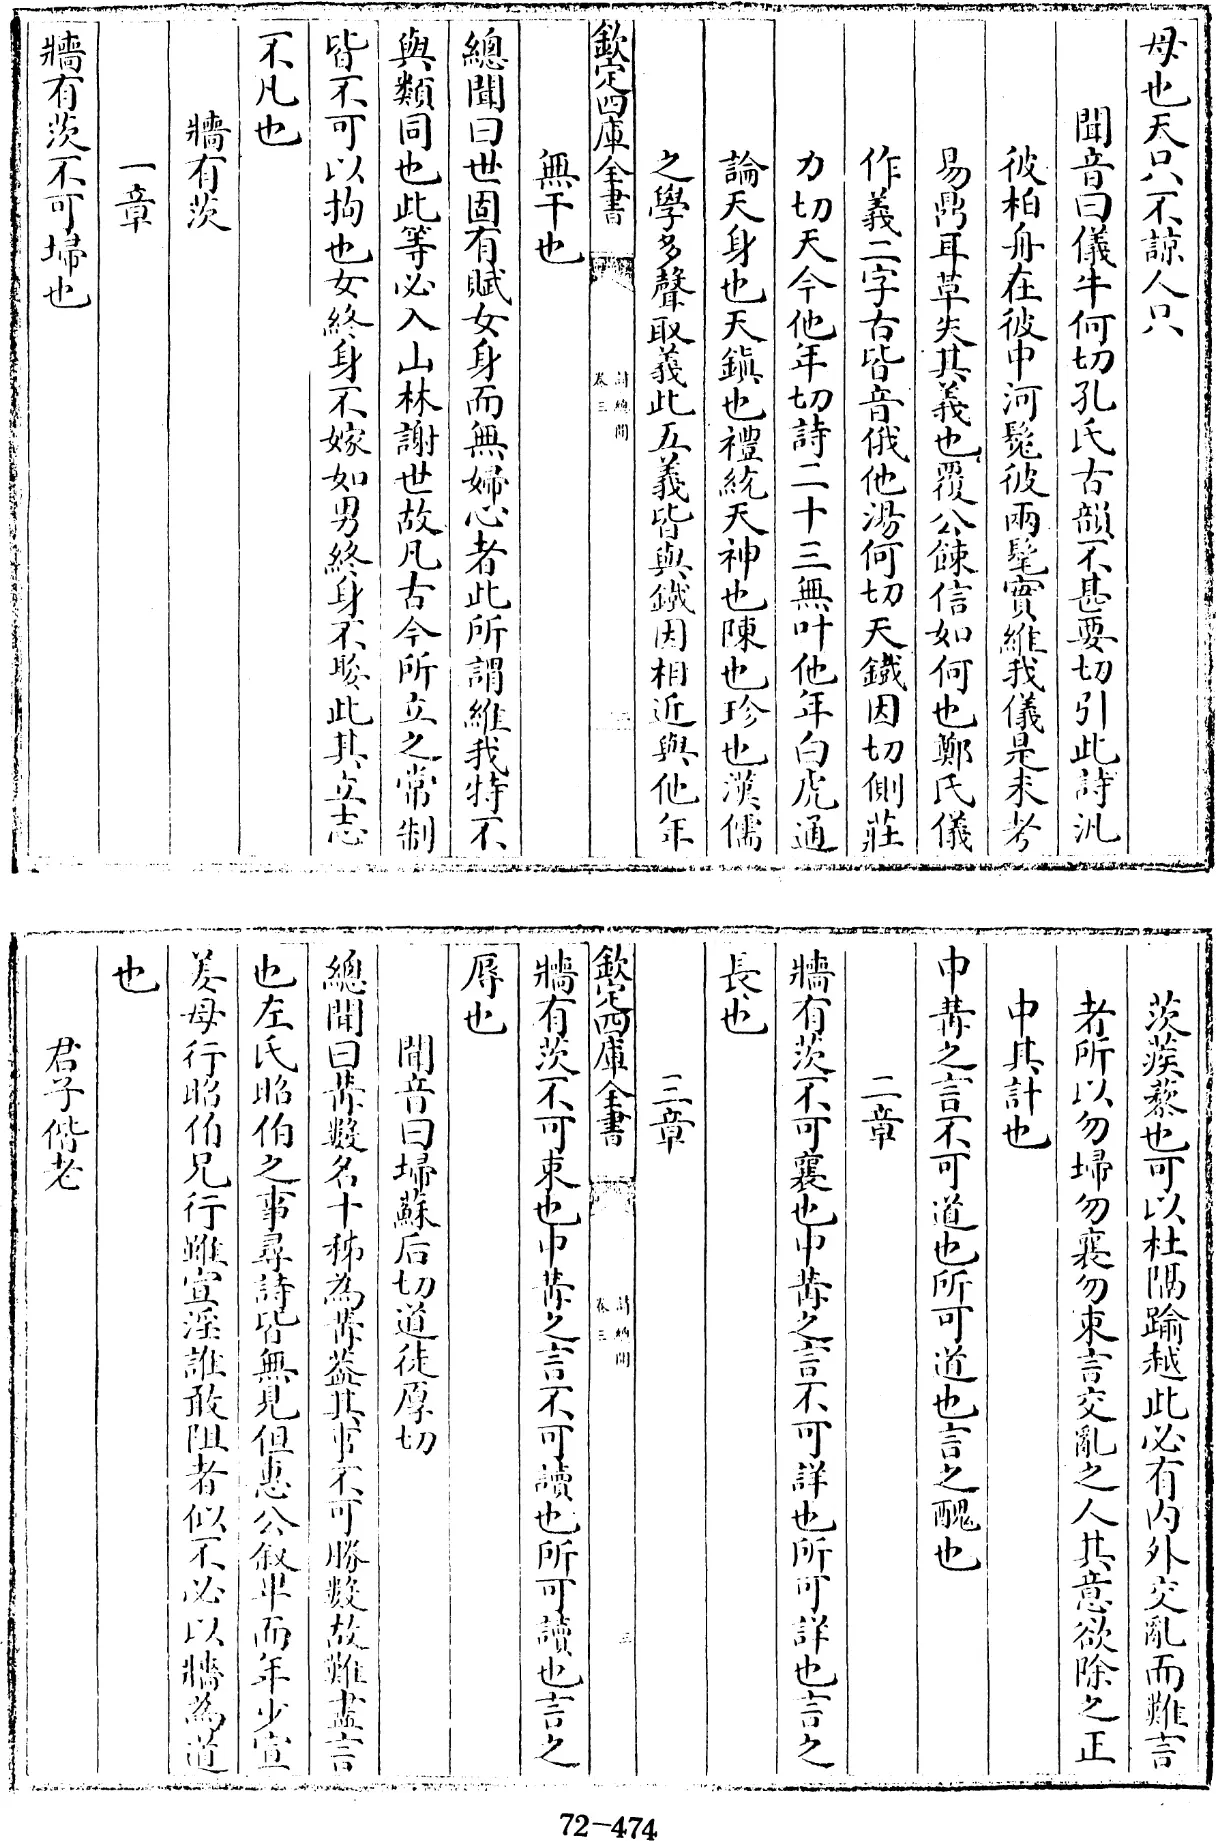 母也天只不諒人只
聞音曰儀牛何切孔氏古韻不甚要切引此詩汎
彼柏舟在彼中河髧彼兩髦實維我儀是未考
易鼎耳革失其義也覆公餗信如何也鄭氏儀
作義二字古皆音俄他湯何切天鐵因切側莊
力切天今他年切詩二十三無叶他年白虎通
論天身也天鎮也禮統天神也陳也珍也漢儒
之學多聲取義此五義皆與鐵因相近與他年
無干也
欽定四庫全書
詩總聞
卷三
二
總聞曰世固有賦女身而無婦心者此所謂維我特不
與類同也此等必入山林謝世故凡古今所立之常制
皆不可以拘也女終身不嫁如男終身不娶此其立志
不凡也
牆有茨
一章
牆有茨不可埽也
茨蒺藜也可以杜隅踰越此必有内外交亂而難言
者所以勿埽勿襄勿束言交亂之人其意欲除之正
中其計也
中冓之言不可道也所可道也言之醜也
二章
牆有茨不可襄也中冓之言不可詳也所可詳也言之
長也
三章
欽定四庫全書
詩總聞
卷三
三
牆有茨不可束也中冓之言不可讀也所可讀也言之
辱也
聞音曰埽蘇后切道徒厚切
總聞曰冓數名十秭為冓蓋其事不可勝數故難盡言
也左氏昭伯之事尋詩皆無見但惠公叙卑而年少宣
姜母行昭伯兄行雖宣淫誰敢阻者似不必以牆為道
也
君子偕老
72-474